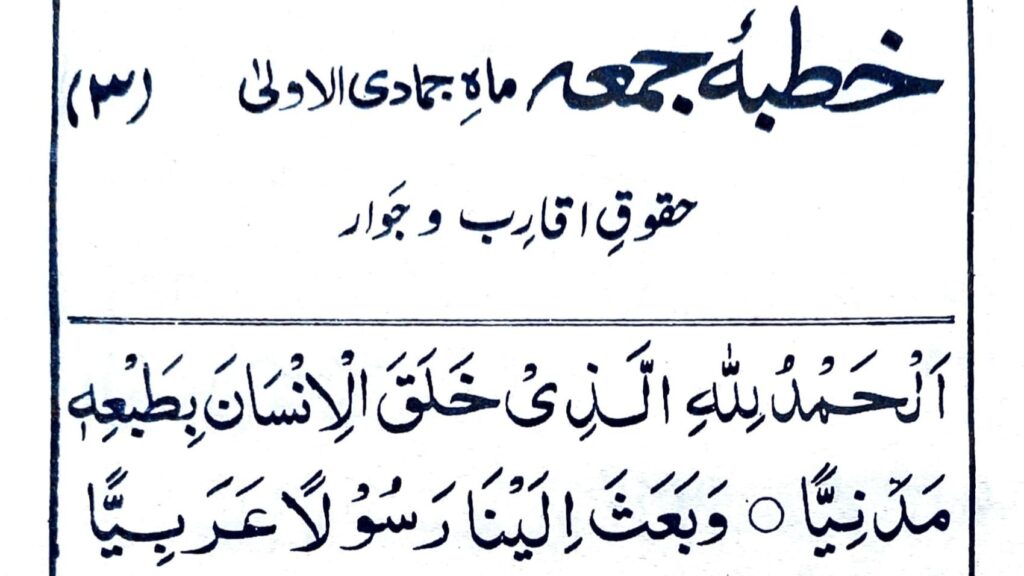 خطبۂ جمعہ ماہِ جمادی الاولیٰ (۳)
حقوقِ اقارِب و جَوار
اَلْحَمْدُ لِلّٰهِ الَّذِیْ خَلَقَ الْاِنْسَانَ بِطَبْعِهٖ
مَدَنِیًّا ○ وَبَعَثَ اِلَیْنَا رَسُوْلًا عَرَبِیًّا